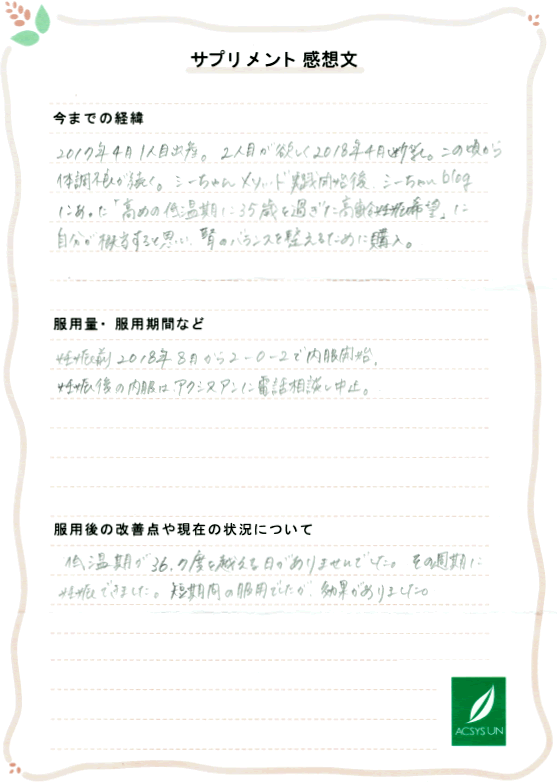 サプリメント 感想文
今までの経緯
2017年4月1人目出産。2人目が欲しく2018年4月断乳。この頃から
体調不良が続く。シーちゃんメソッド実践開始後、シーちゃんblog
にあった「高めの低温期に35歳を過ぎた高齢妊娠希望」に
自分が相当すると思い、腎のバランスを整えるために購入。
服用量・服用期間など
妊娠前2018年8月から2-0-2で内服開始、
妊娠後の内服はアクシスアンに電話相談し中止。
服用後の改善点や現在の状況について
低温期が36.7度を越える日がありませんでした。その周期に
妊娠できました。短期間の服用でしたが、効果がありました。
ACSYSUN